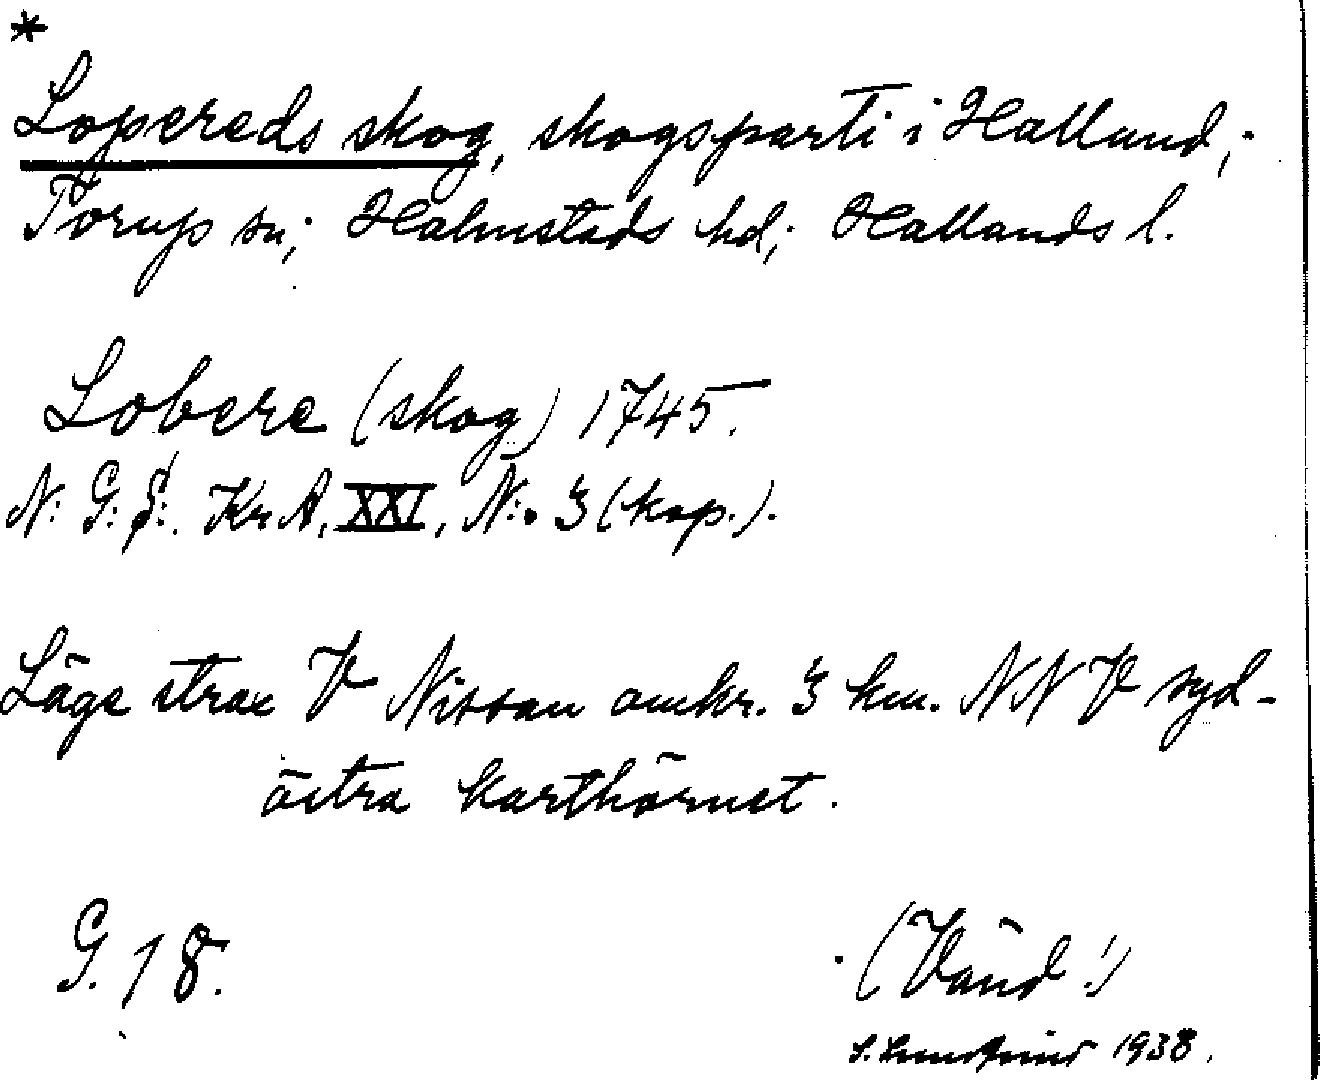 *
Lopereds skog, skogsparti i Halland;
Torup sn; Halmstads hd; Hallands l.
Lobere (skog) 1745.
N: G: S:. KrA. XXI, N:o 3 (kop.).
Läge strax V Nissan omkr. 3 km. NNV syd-
östra karthörnet.
G. 18.
(Vänd!)
1938.